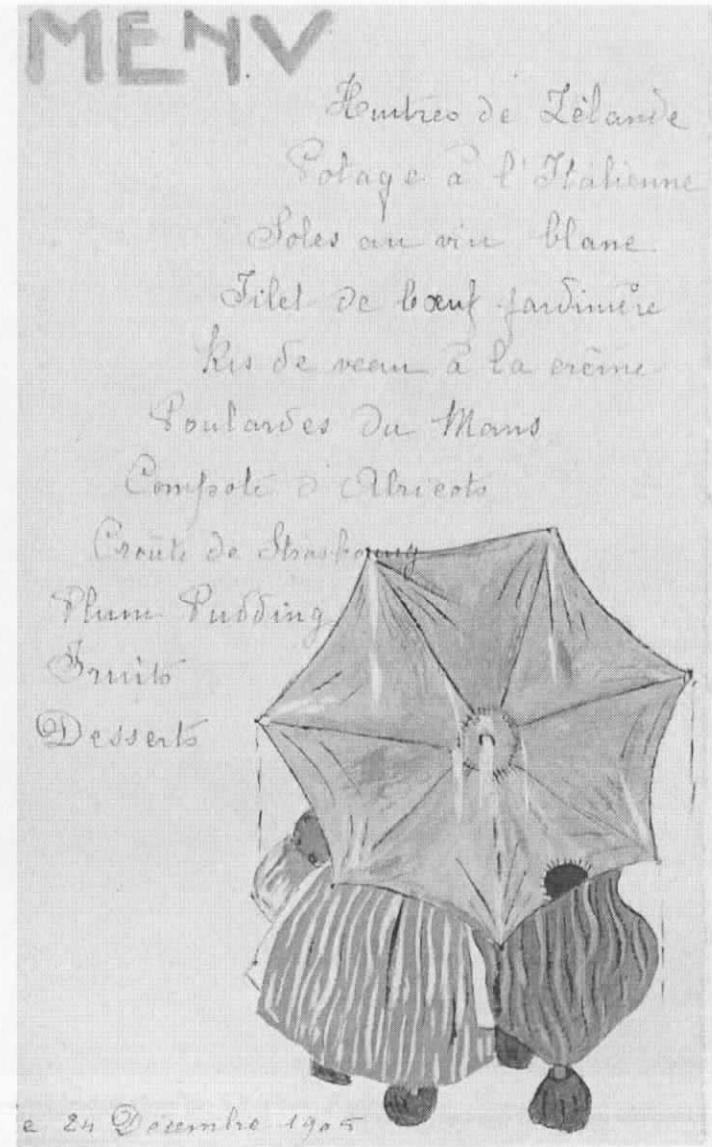 MENU
Huitres de Zélande
Potage à l'Italienne
Soles au vin blanc
Filet de bœuf jardinière
Ris de veau à la crème
Poulardes du Mans
Compote d'Abricots
Croûte de Strasbourg
Plum Pudding
Fruits
Desserts
e 24 Décembre 1905